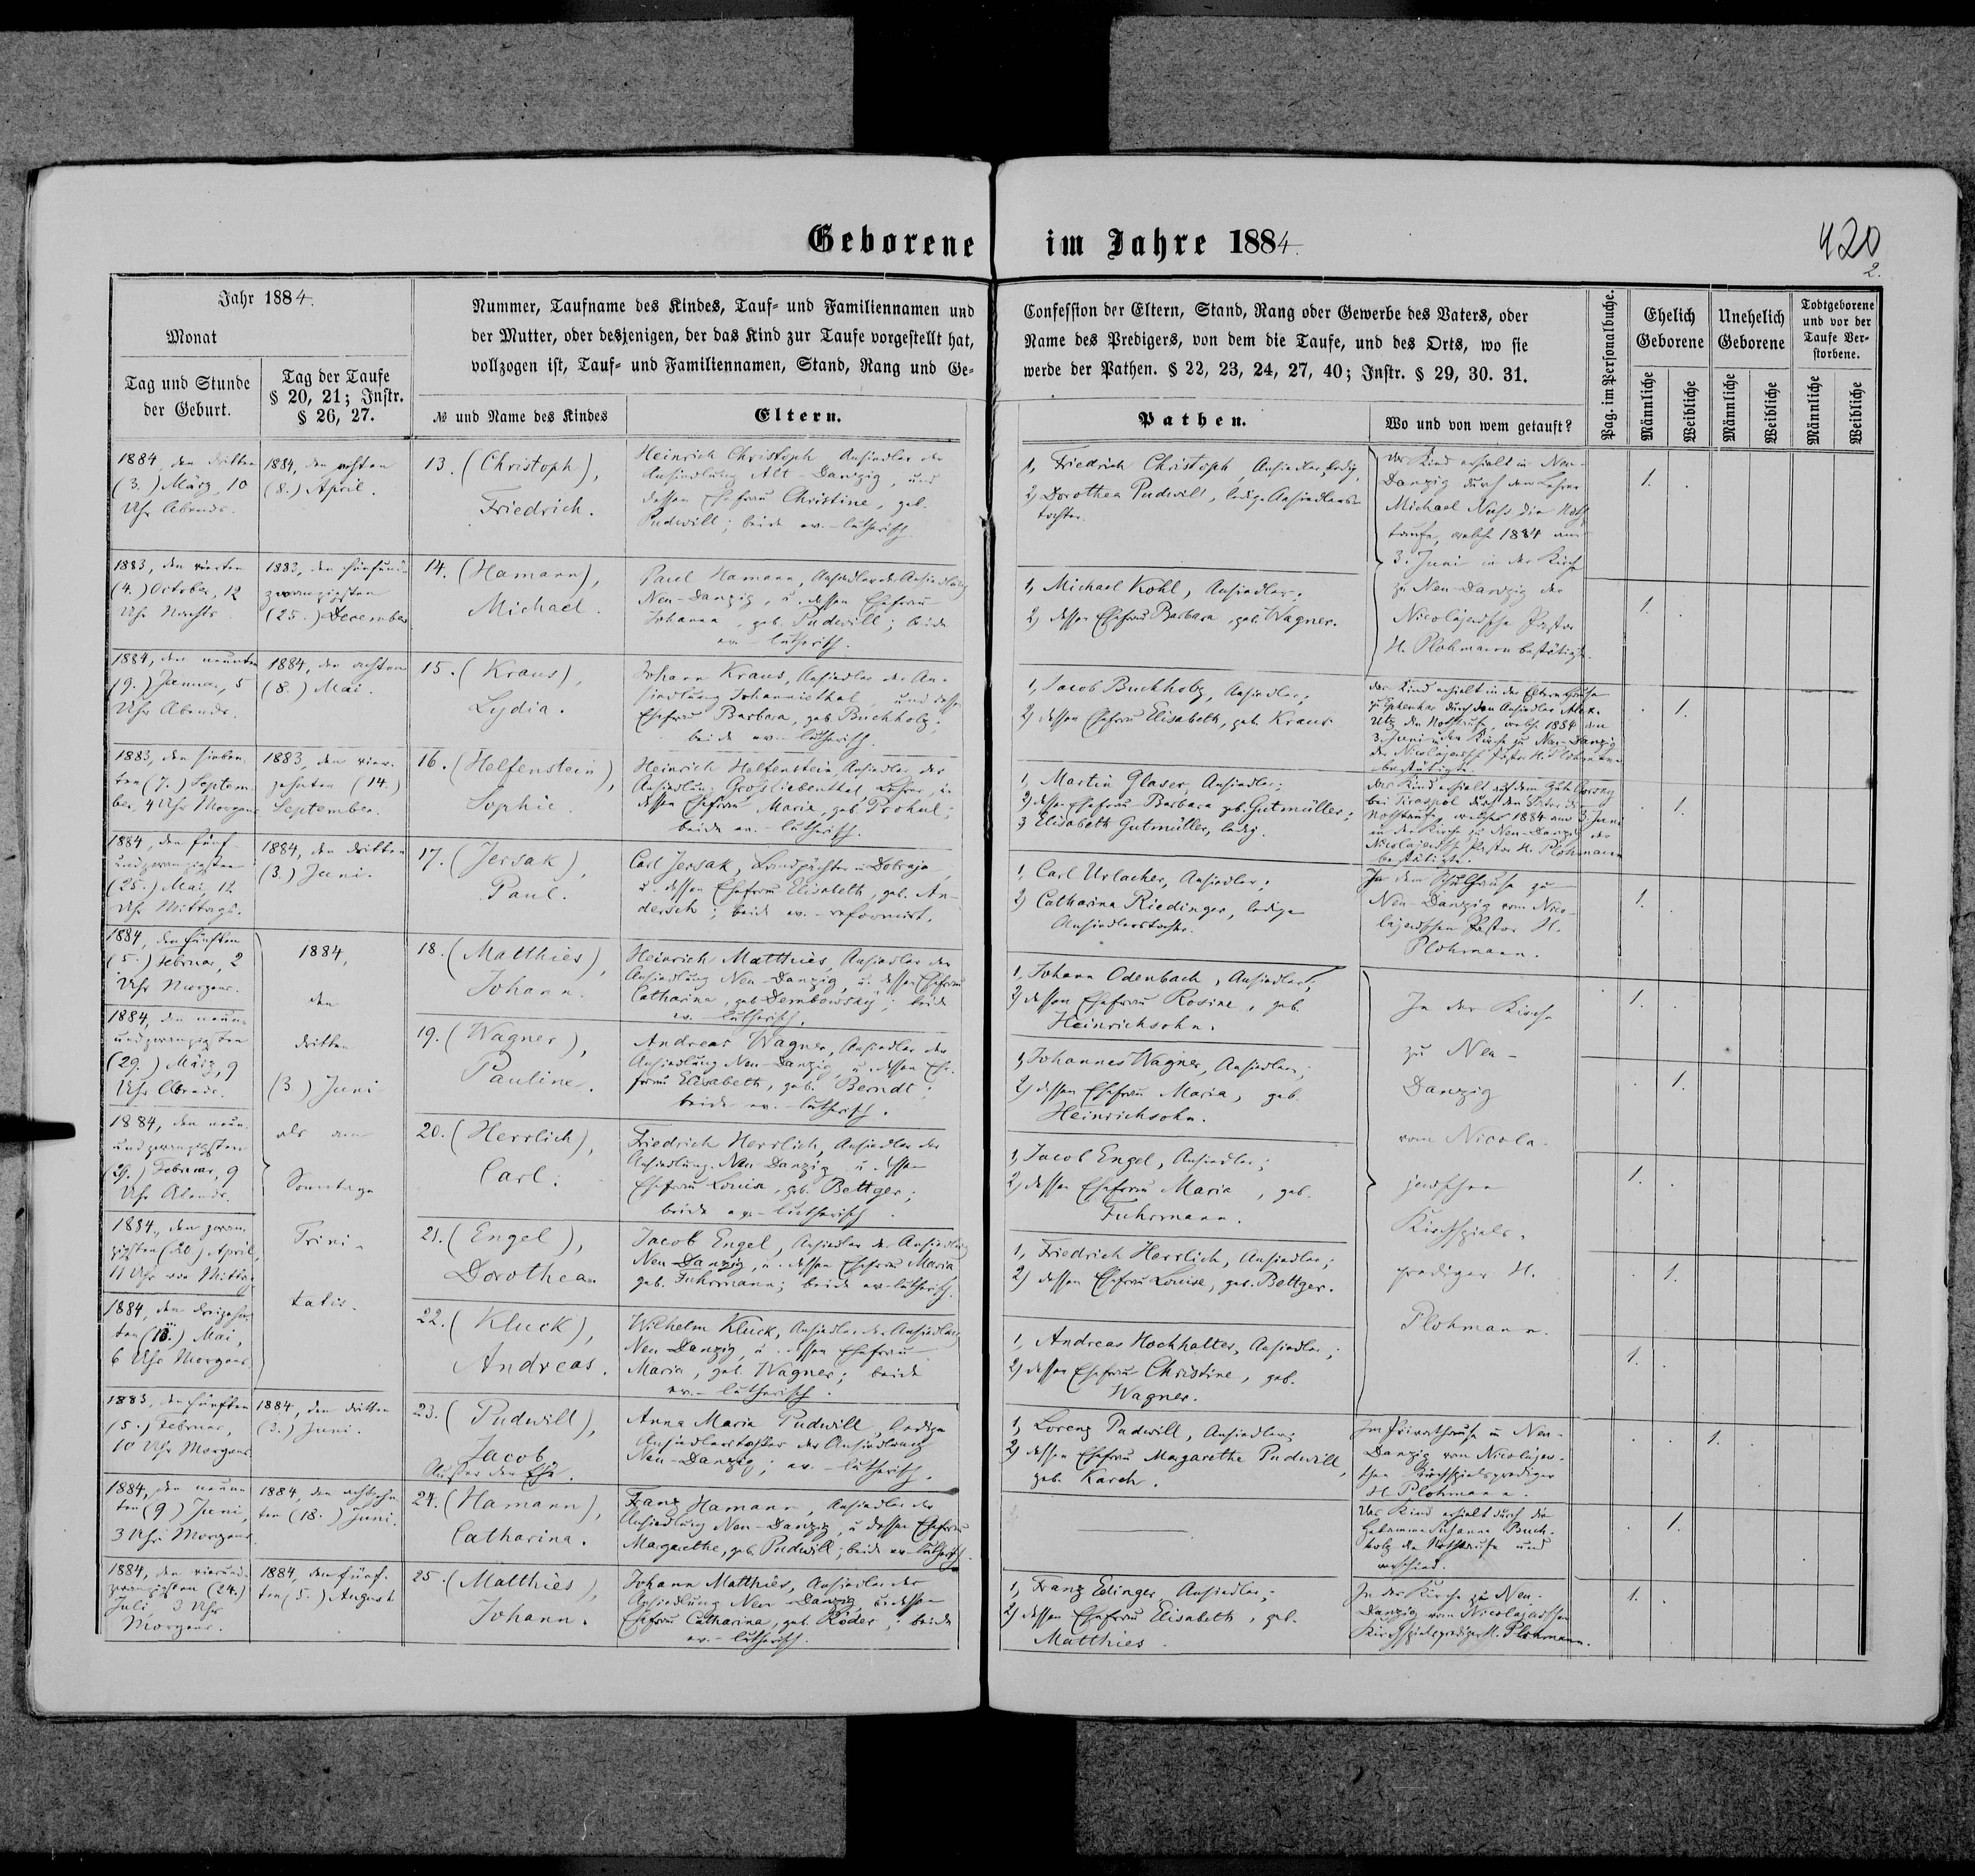 Geborene im Jahre 1884.
420
2.
Jahr 1884.
Monat
Tag und Stunde
der Geburt.
Tag der Taufe
§ 20, 21; Instr.
§ 26, 27.
Nummer, Taufname des Kindes, Tauf- und Familiennamen und
der Mutter, oder desjenigen, der das Kind zur Taufe vorgestellt hat,
vollzogen ist, Tauf- und Familiennamen, Stand, Rang und Ge-
№ und Name des Kindes
Eltern.
Confession der Eltern, Stand, Rang oder Gewerbe des Vaters, oder
Name des Predigers, von dem die Taufe, und des Orts, wo sie
werde der Pathen. § 22, 23, 24, 27, 40; Instr. § 29, 30. 31.
Pathen.
Wo und von wem getauft?
Pag. im Personalbuche.
Ehelich
Geborene
Unehelich
Geborene
Todtgeborene
und vor der
Taufe Ver-
storbene.
Männliche
Weibliche
Männliche
Weibliche
Männliche
Weibliche
1884, den dritten
(3.) März, 10
Uhr Abends.
1884, den achten
(8.) April.
13. (Christoph),
Friedrich.
Heinrich Christoph, Ansiedler der
Ansiedlung Alt-Danzig, und
dessen Ehefrau Christine, geb.
Pudwill; beide ev.-lutherisch.
1, Friedrich Christoph, Ansiedler, ledig,
2) Dorothea Pudwill, ledige Ansiedlers-
tochter.
Das Kind erhielt in Neu-
Danzig durch den Lehrer
Michael Nuss die Noth-
taufe, welche 1884 am
3. Juni in der Kirche
zu Neu-Danzig der
Nicolajewsche Pastor
H. Plohmann bestätigte.
1.
1883, den vierten
(4.) October, 12
Uhr Nachts.
1883, den fünfund-
zwanzigsten
(25.) December.
14. (Hamann),
Michael.
Paul Hamann, Ansiedler der Ansiedlung
Neu-Danzig, u. dessen Ehefrau
Johanna, geb. Pudwill; beide
ev.-lutherisch.
1, Michael Kohl, Ansiedler;
2) dessen Ehefrau Barbara, geb. Wagner.
1.
1884, den neunten
(9.) Januar, 5
Uhr Abends.
1884, den achten
(8.) Mai.
15. (Kraus),
Lydia.
Johann Kraus, Ansiedler der An-
siedlung Johannisthal, und dessen
Ehefrau Barbara, geb. Buchholz;
beide ev.-lutherisch.
1, Jacob Buchholz, Ansiedler;
2) dessen Ehefrau Elisabeth, geb. Kraus
Das Kind erhielt in der Eltern Hause
durch den Ansiedler Alex.
Utz die Nothtaufe, welche 1884 am
3. Juni in der Kirche zu Neu-Danzig
der Nicolajewsche Pastor H. Plohmann
bestätigte.
1.
1883, den sieben-
ten (7.) Septem-
ber, 4 Uhr Morgens.
1883, den vier-
zehnten (14.)
September.
16. (Helfenstein),
Sophie
Heinrich Helfenstein, Ansiedler der
Ansiedlung Grossliebenthal, Lehrer, u.
dessen Ehefrau Maria, geb. Prokul;
beide ev.-lutherisch.
1, Martin Glaser, Ansiedler;
2) dessen Ehefrau Barbara geb. Gutmüller;
3 Elisabeth Gutmüller, ledig.
Das Kind erhielt auf dem Gute
bei Tiraspol durch den Vater die
Nothtaufe, welche 1884 am 3. Juni
in der Kirche zu Neu-Danzig der
Nicolajewsche Pastor H. Plohmann
bestätigte.
1.
1884, den fünf-
undzwanzigsten
(25.) Mai, 12
Uhr Mittags.
1884, den dritten
(3.) Juni.
17. (Jersak),
Paul.
Carl Jersak, Landpächter in Dobraja,
u. dessen Ehefrau Elisabeth, geb. An-
dersch; beide ev.-reformirt.
1, Carl Urlacher, Ansiedler;
2) Catharina Riedinger, ledige
Ansiedlerstochter.
In dem Schulhause zu
Neu-Danzig vom Nico-
lajewschen Pastor H.
Plohmann.
1.
1884, den fünften
(5.) Februar, 2
Uhr Morgens.
1884,
den
dritten
(3.) Juni
als am
Sonntage
Trini-
tatis.
18. (Matthies),
Johann.
Heinrich Matthies, Ansiedler der
Ansiedlung Neu-Danzig, u. dessen Ehefrau
Catharina, geb. Dembowsky; beide
ev.-lutherisch.
1, Johann Odenbach, Ansiedler;
2) dessen Ehefrau Rosine, geb.
Heinrichsohn.
In der Kirche
zu Neu-
Danzig
vom Nicola-
jewschen
Kirchspiels-
prediger H.
Plohmann.
1.
1884, den neun-
undzwanzigsten
(29.) März, 9
Uhr Abends.
19. (Wagner),
Pauline.
Andreas Wagner, Ansiedler der
Ansiedlung Neu-Danzig, u. dessen Ehe-
frau Elisabeth, geb. Berndt;
beide ev.-lutherisch.
1, Johannes Wagner, Ansiedler;
2) dessen Ehefrau Maria, geb.
Heinrichsohn.
1.
1884, den neun-
undzwanzigsten
(29.) Februar, 9
Uhr Abends.
20. (Herrlich),
Carl.
Friedrich Herrlich, Ansiedler der
Ansiedlung Neu-Danzig u. dessen
Ehefrau Louise, geb. Bettger;
beide ev.-lutherisch.
1, Jacob Engel, Ansiedler;
2) dessen Ehefrau Maria, geb.
Fuhrmann.
1.
1884, den zwan-
zigsten (20) April,
11 Uhr vor Mittag
21. (Engel),
Dorothea.
Jacob Engel, Ansiedler der Ansiedlung
Neu-Danzig, u. dessen Ehefrau Maria
geb. Fuhrmann; beide ev-lutherisch.
1, Friedrich Herrlich, Ansiedler;
2) dessen Ehefrau Louise, geb. Bettger.
1.
1884, den dreizehn-
ten (13.) Mai,
6 Uhr Morgens
22. (Kluck),
Andreas.
Wilhelm Kluck, Ansiedler der Ansiedlung
Neu-Danzig, u. dessen Ehefrau
Maria, geb. Wagner; beide
ev.-lutherisch.
1, Andreas Hochhalter, Ansiedler;
2) dessen Ehefrau Christine, geb.
Wagner.
1.
1883, den fünften
(5.) Februar,
10 Uhr Morgens
1884, den dritten
(3.) Juni.
23. (Pudwill),
Jacob
Ausser der Ehe.
Anna Maria Pudwill, ledige
Ansiedlerstochter der Ansiedlung
Neu-Danzig; ev.-lutherisch.
1, Lorenz Pudwill, Ansiedler;
2) dessen Ehefrau Margarethe Pudwill,
geb. Karch.
Im Privathause in Neu-
Danzig vom Nicolajew-
schen Kirchspielsprediger
H. Plohmann.
1.
1884, den neun-
ten (9) Juni,
3 Uhr Morgens.
1884, den achtzehn-
ten (18.) Juni.
24. (Hamann),
Catharina.
Franz Hamann, Ansiedler der
Ansiedlung Neu-Danzig, u dessen Ehefrau
Margarethe, geb. Pudwill; beide ev-lutherisch.
Das Kind erhielt durch die
Hebamme Susanna Buch-
holz die Nothtaufe und
verschied.
1.
1884, den vierund-
zwanzigsten (24.)
Juli 3 Uhr
Morgens.
1884, den fünf-
ten (5.) August
25. (Matthies),
Johann.
Johann Matthies, Ansiedler der
Ansiedlung Neu-Danzig, u. dessen
Ehefrau Catharina, geb. Röder; beide
ev.-lutherisch.
1, Franz Edinger, Ansiedler;
2) dessen Ehefrau Elisabeth, geb.
Matthies.
In der Kirche zu Neu-
Danzig vom Nicolajewschen
Kirchspielsprediger H. Plohmann.
1.